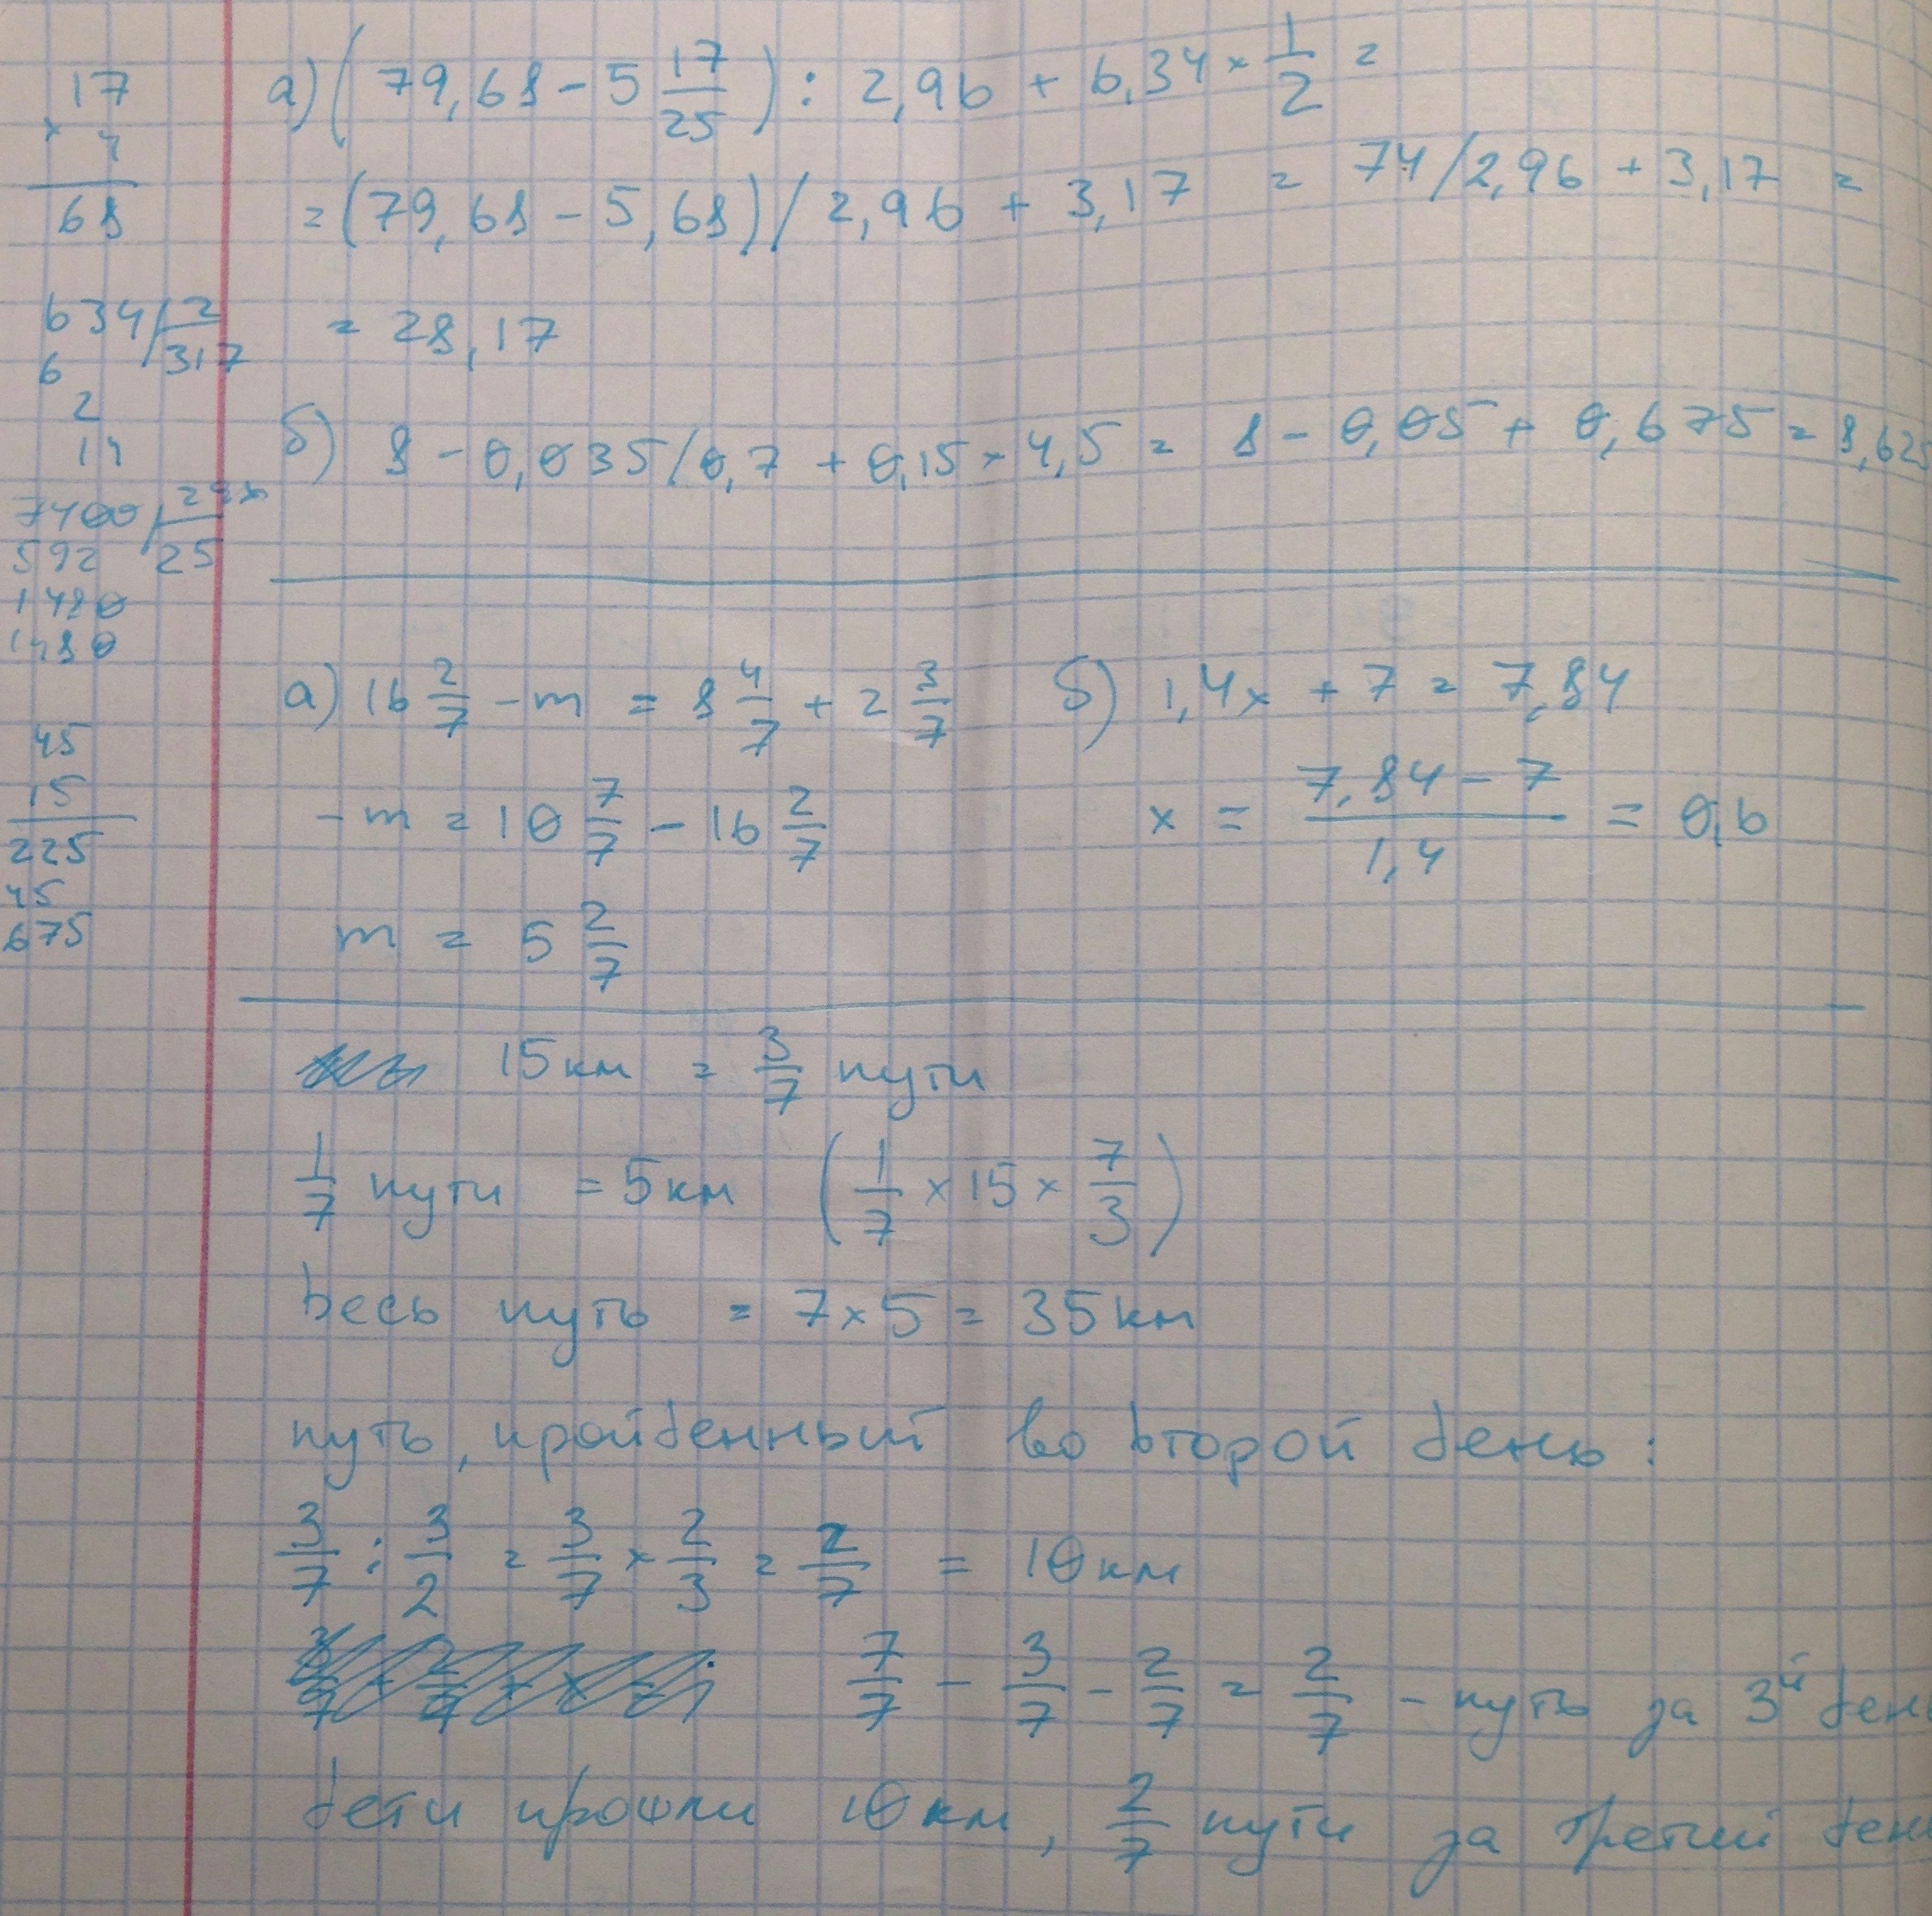 17
× 4
68
634/2
6 317
2
14
7400/296
592 25
1480
1480
45
15
225
45
675
а) (79,68 - 5 17/25) : 2,96 + 6,34 × 1/2 =
= (79,68 - 5,68) / 2,96 + 3,17 = 74/2,96 + 3,17 =
= 28,17
б) 8 - 0,035/0,7 + 0,15 × 4,5 = 8 - 0,05 + 0,675 = 8,625
а) 16 2/7 - m = 8 4/7 + 2 3/7 б) 1,4x + 7 = 7,84
- m = 10 7/7 - 16 2/7 x = (7,84 - 7)/1,4 = 0,6
m = 5 2/7
15 км = 3/7 пути
1/7 пути = 5 км (1/7 × 15 × 7/3)
Весь путь = 7 × 5 = 35 км
путь, пройденный во второй день:
3/7 : 3/2 = 3/7 × 2/3 = 2/7 = 10 км
7/7 - 3/7 - 2/7 = 2/7 - путь за 3й ден
дети прошли 10 км, 2/7 пути за третий ден